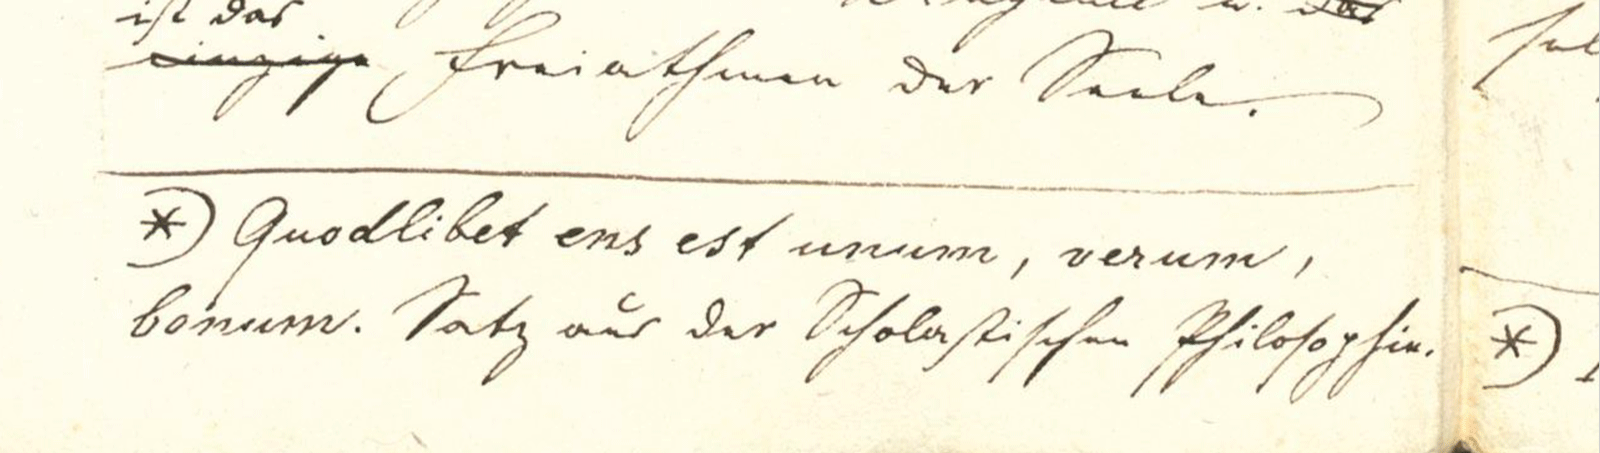 ist das
einzige Freiathmen der Seele.
*) Quodlibet ens est unum, verum,
bonum. Satz aus der Scholastischen Philosophie.
*)